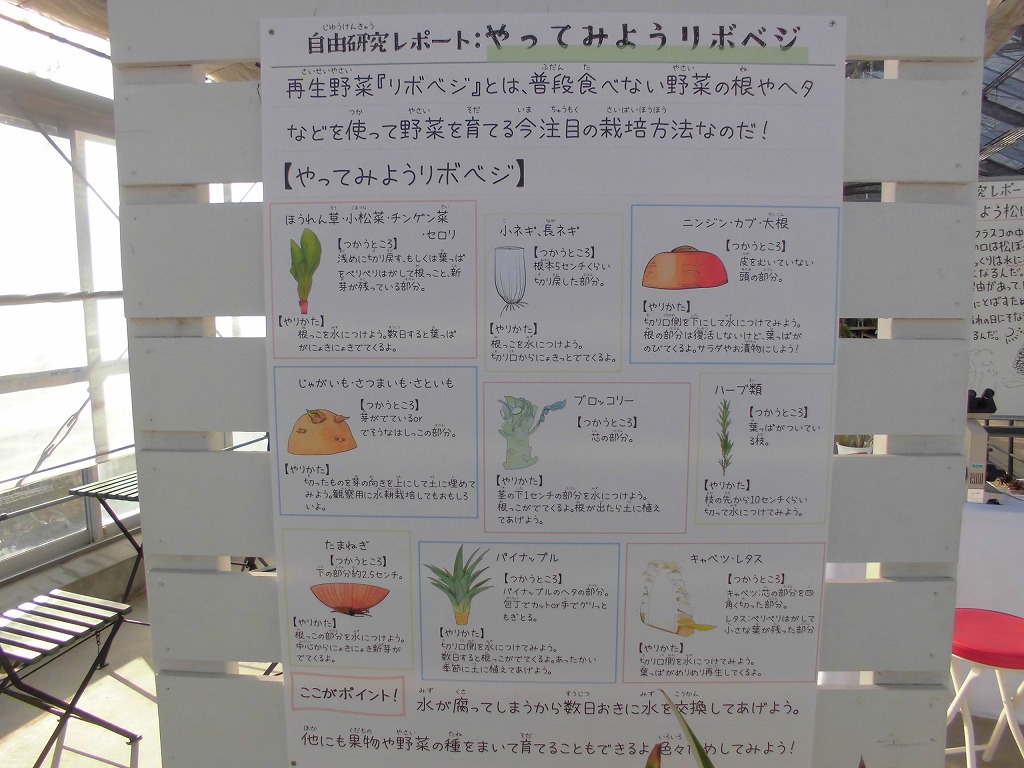 自由研究レポート:やってみようリボベジ
再生野菜『リボベジ』とは、普段食べない野菜の根やヘタ
などを使って野菜を育てる今注目の栽培方法なのだ!
【やってみようリボベジ】
ほうれん草・小松菜・チンゲン菜
・セロリ
【つかうところ】
浅めにちかり戻す。もしくは葉っぱ
をペリペリはがして根っこと、新
芽が残っている部分。
【やりかた】
根っこを水につけよう。数日すると葉っぱ
がにょきにょきでてくるよ。
小ネギ、長ネギ
【つかうところ】
根本5センチくらい
切り戻した部分。
【やりかた】
根っこを水につけよう。
切り口からにょきっとでてくるよ。
ニンジン・カブ・大根
【つかうところ】
皮をむいていない
頭の部分。
【やりかた】
切り口側を下にして水につけてみよう。
根の部分は復活しないけど、葉っぱが
のびてくるよ。サラダやお漬物にしよう!
じゃがいも・さつまいも・さといも
【つかうところ】
芽がでているor
でそうなはしっこの部分。
【やりかた】
切ったものを芽の向きを上にして土に埋めて
みよう。観察用に水耕栽培してもおもしろ
いよ。
ブロッコリー
【つかうところ】
芯の部分。
【やりかた】
茎の下1センチの部分を水につけよう。
根っこがでてくるよ。根が出たら土に植え
てあげよう。
ハーブ類
【つかうところ】
葉っぱがついてい
る枝。
【やりかた】
枝の先から10センチくらい
切って水につけてみよう。
たまねぎ
【つかうところ】
下の部分約2.5センチ。
【やりかた】
根っこの部分を水につけよう。
中心からにょきにょき新芽が
でてくるよ。
パイナップル
【つかうところ】
パイナップルのヘタの部分。
包丁でカットor手でグリっと
もぎとる。
【やりかた】
切り口側を水につけてみよう。
数日すると根っこがでてくるよ。あったかい
季節に土に植えてあげよう。
キャベツ・レタス
【つかうところ】
キャベツ:芯の部分を四
角く切った部分。
レタス:ペリペリはがして
小さな葉が残った部分
【やりかた】
切り口側を水につけてみよう。
葉っぱがめりめり再生してくるよ。
ここがポイント!
水が腐ってしまうから数日おきに水を交換してあげよう。
他にも果物や野菜の種をまいて育てることもできるよ 色々 めしてみよう!